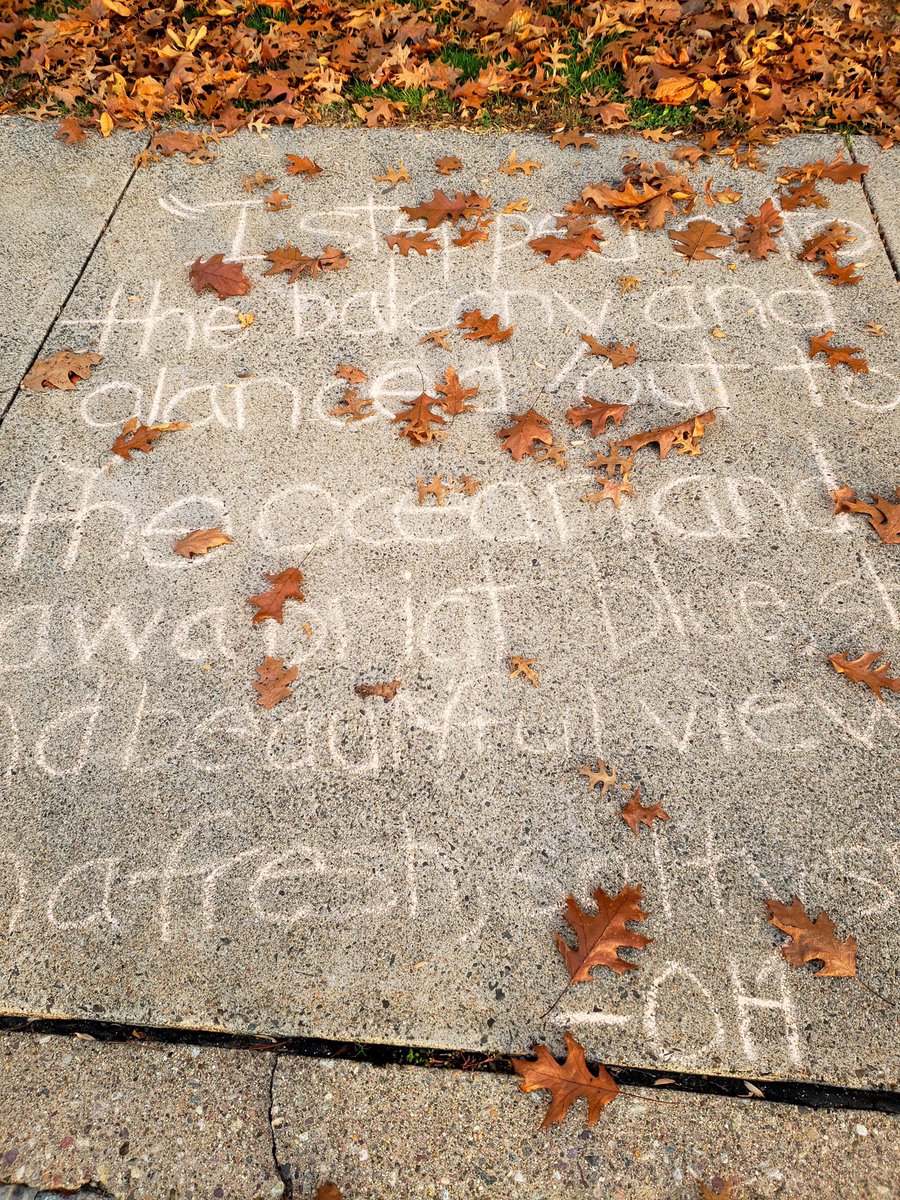 "I stepped onto
the balcony and
glanced out to
the ocean and
aw a brigt blue, st
nd beautiful view
a fresh, salty
-OH